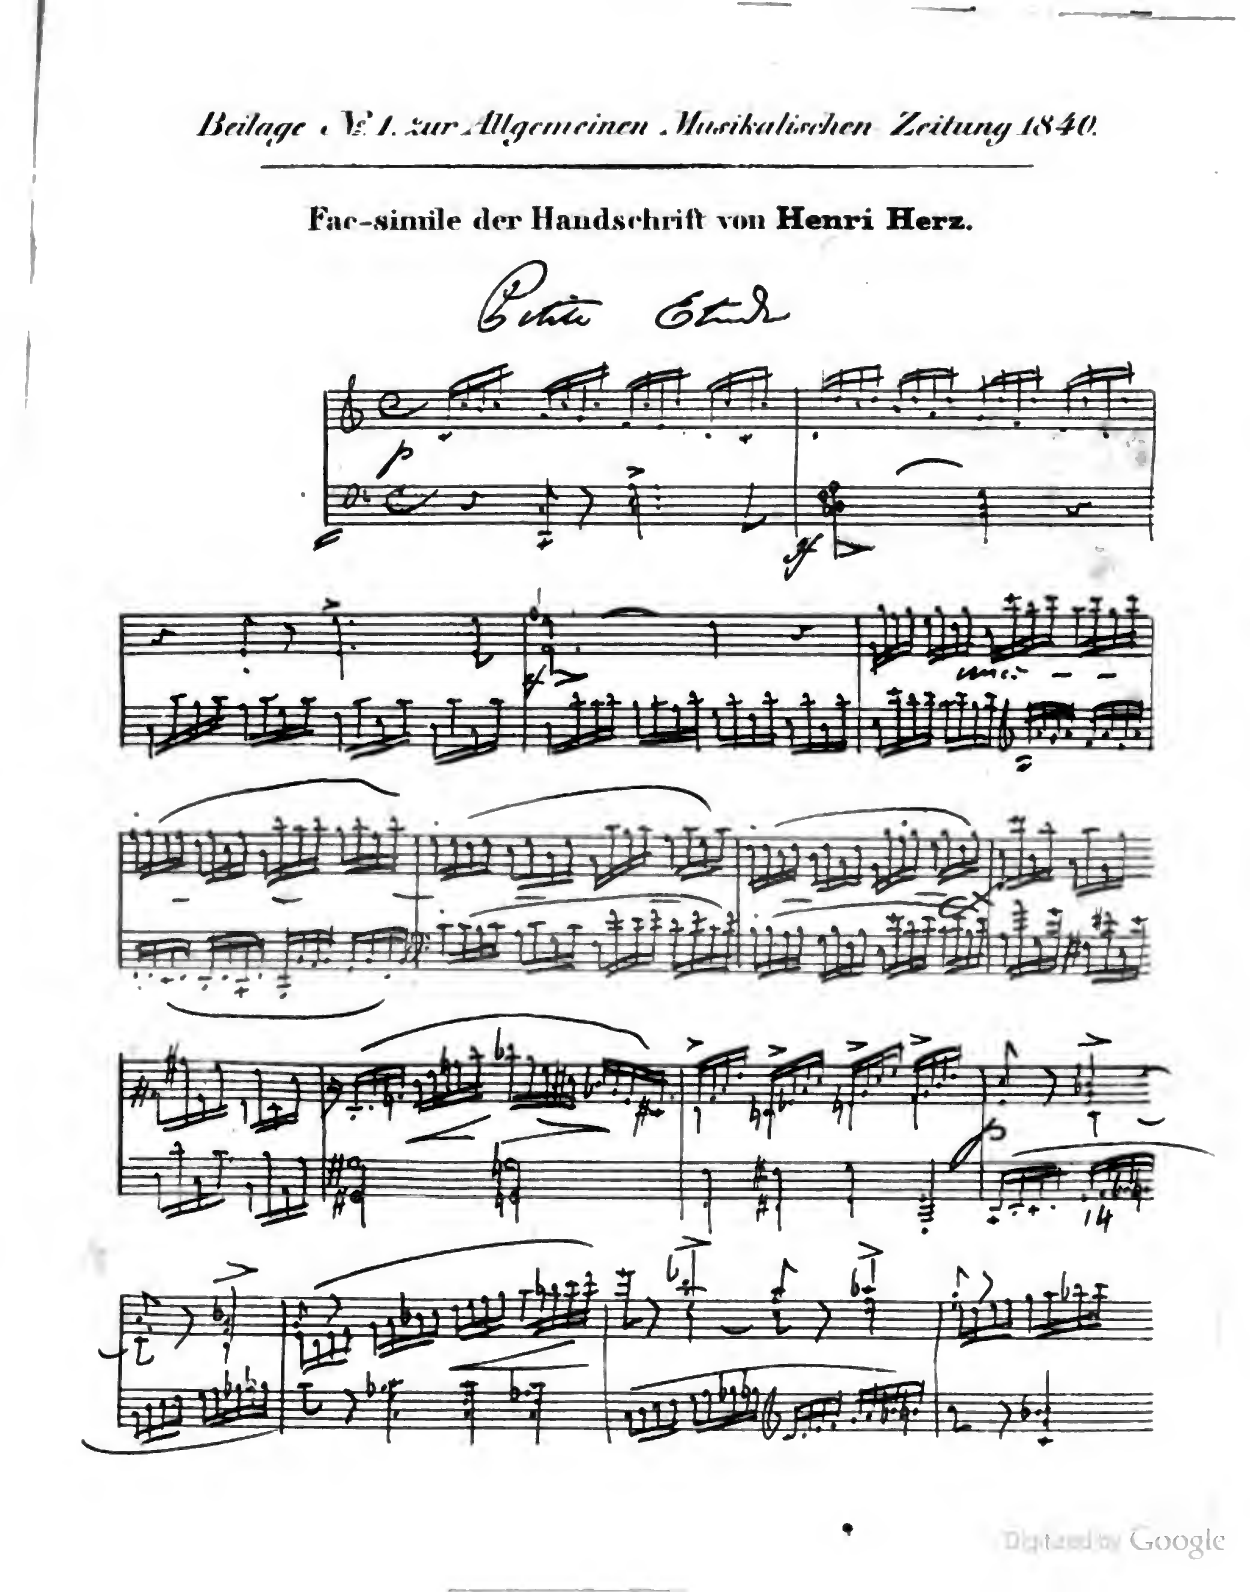 Beilage No. 1. zur Allgemeinen Musikalischen Zeitung 1840.
Fac-simile der Handschrift von Henri Herz.
Petite Etude
p
sf
sf
cresc.
p
14
Digitized by Google